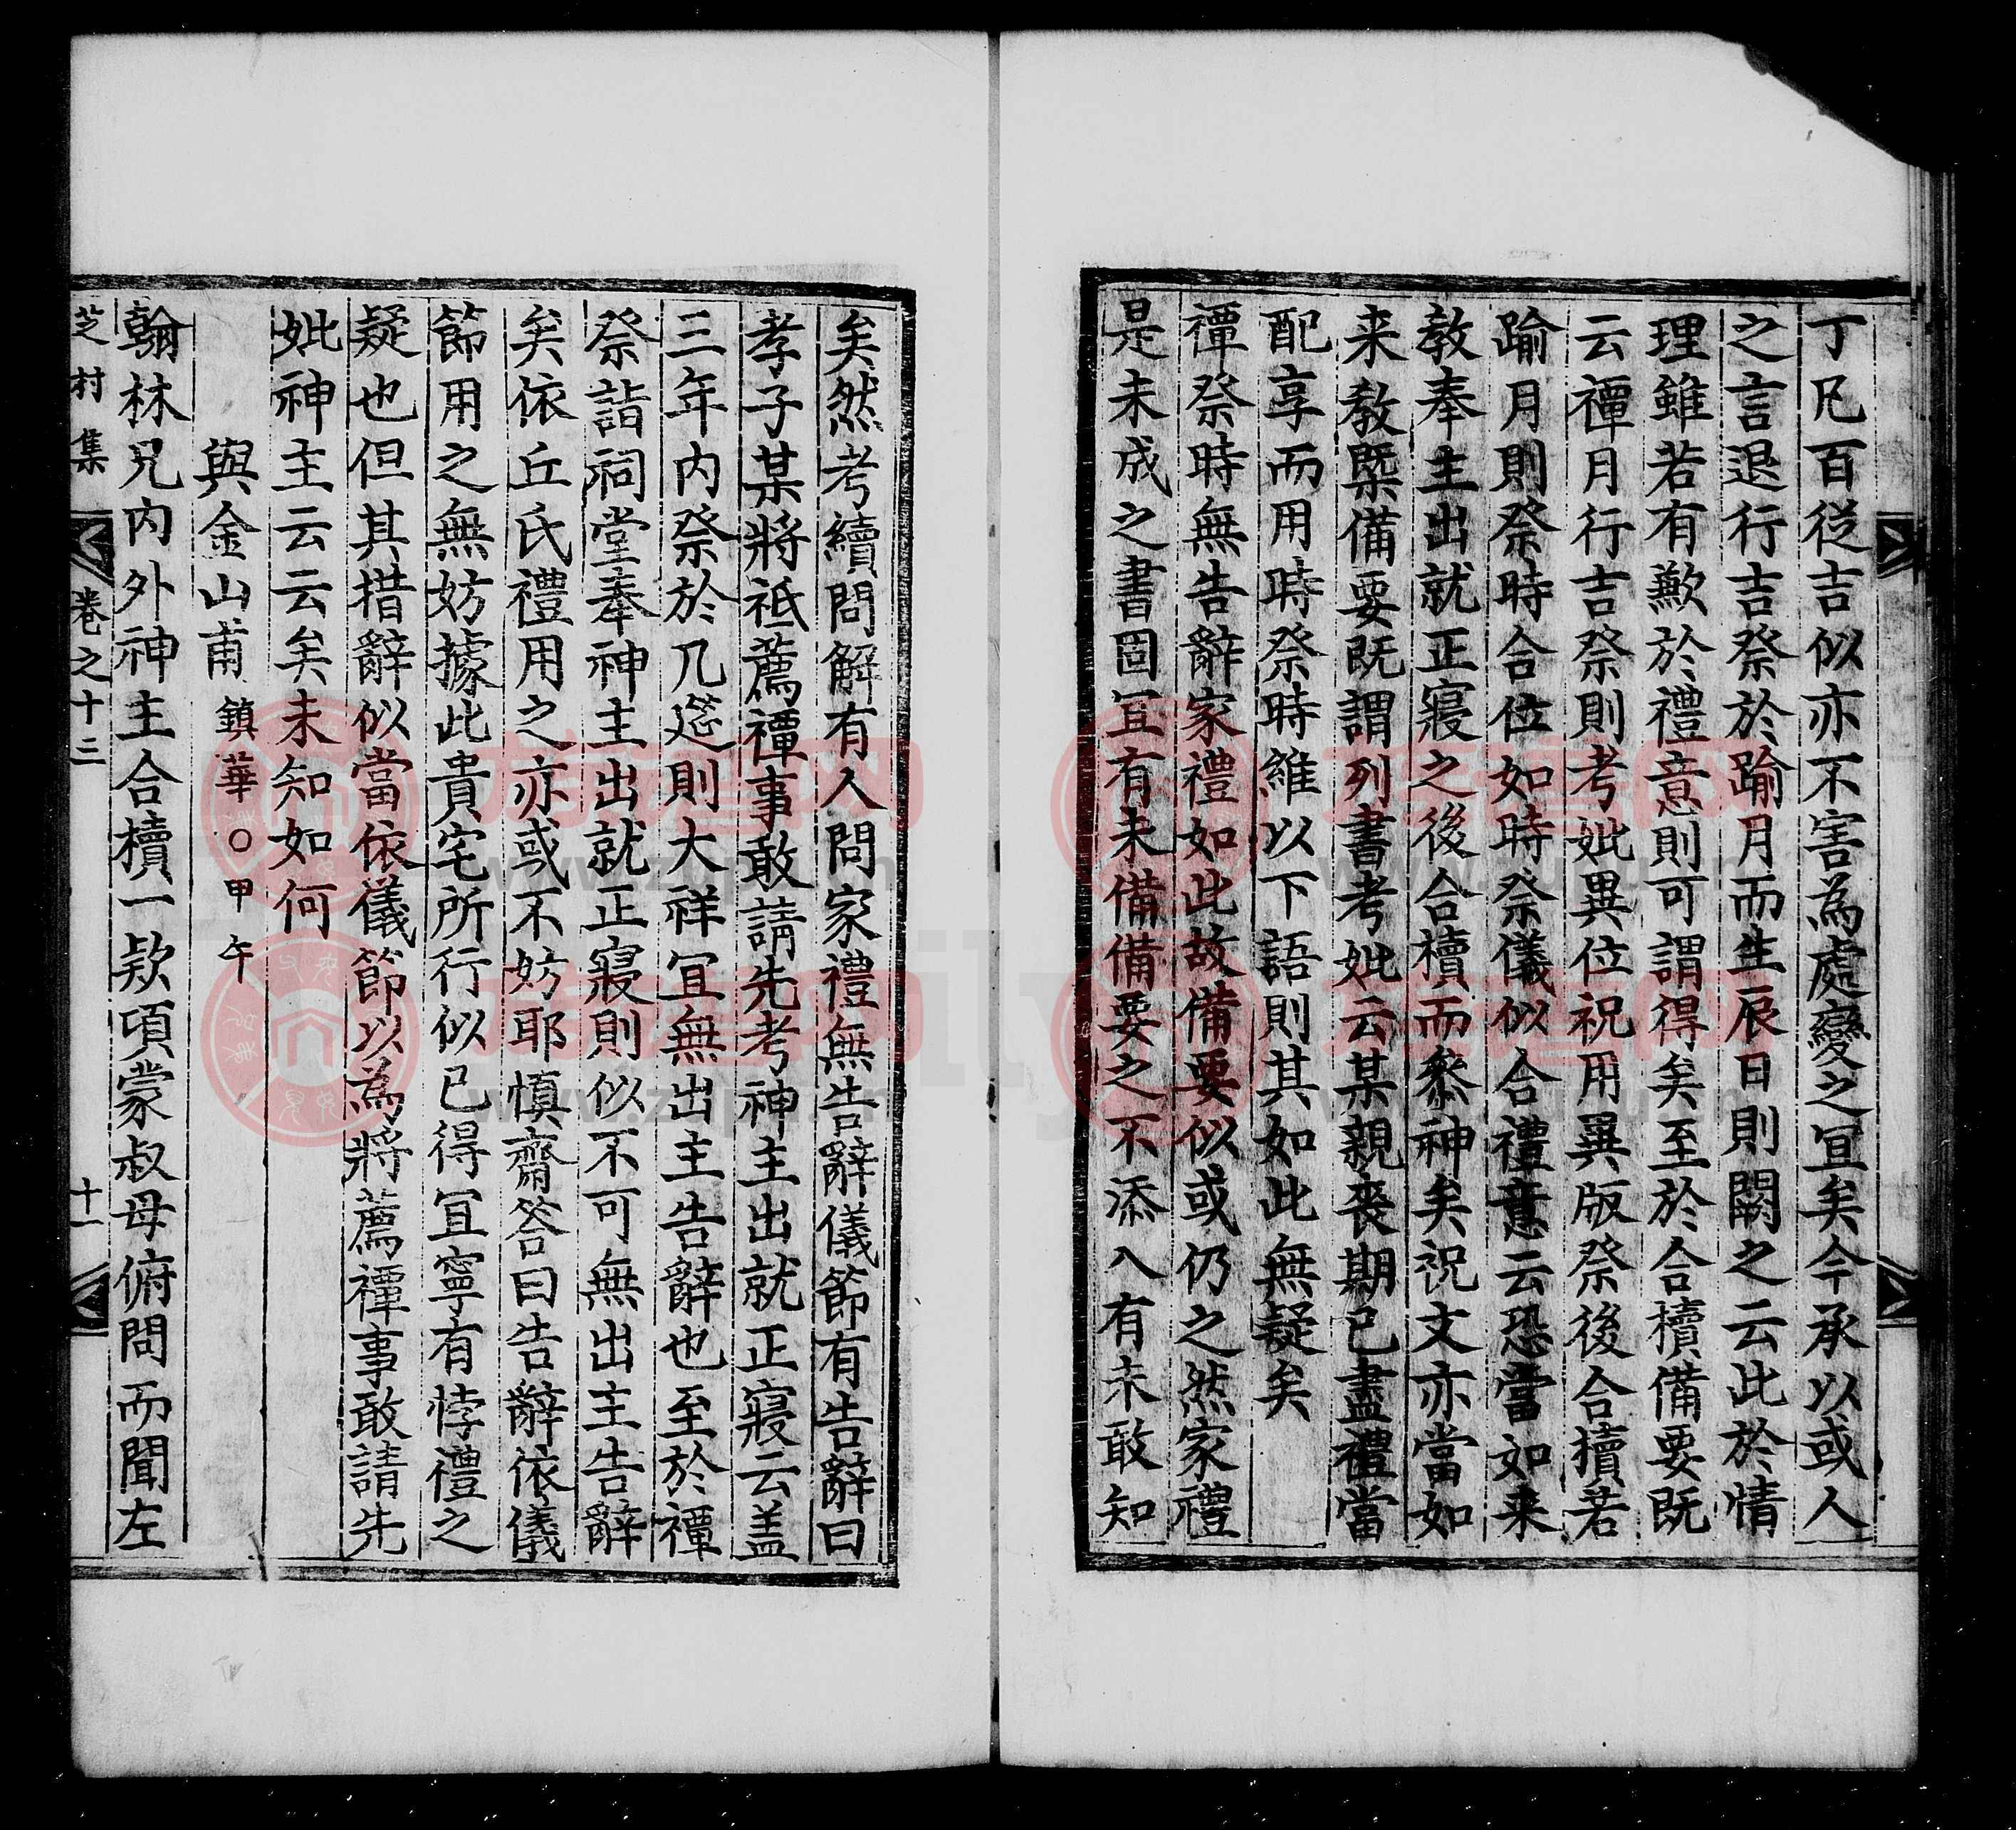 丁凡百從吉似亦不害為處變之宜矣今承以或人
之言退行吉祭於踰月而生辰日則闕之云此於情
理雖若有歉於禮意則可謂得矣至於合櫝備要既
云禫月行吉祭則考妣異位祝用異版祭後合櫝若
踰月則祭時合位如時祭儀似合禮意云恐當如来
教奉主出就正寢之後合櫝而叅神矣祝文亦當如
来教槩備要既謂列書考妣云某親喪期已盡禮當
配享而用時祭時維以下語則其如此無疑矣
禫祭時無告辭家禮如此故備要似或仍之然家禮
是未成之書固宜有未備備要之不添入有未敢知
矣然考續問解有人問家禮無告辭儀節有告辭曰
孝子某將祗薦禫事敢請先考神主出就正寢云盖
三年内祭於几筵則大祥宜無出主告辭也至於禫
祭詣祠堂奉神主出就正寢則似不可無出主告辭
矣依丘氏禮用之亦或不妨耶慎齋答曰告辭依儀
節用之無妨據此貴宅所行似已得宜寧有悖禮之
疑也但其措辭似當依儀節以為將薦禫事敢請先
妣神主云云矣未知如何
與金山甫 鎮華○甲午
翰林兄内外神主合櫝一欵頃蒙叔母俯問而聞左
芝村集 卷之十三 十一